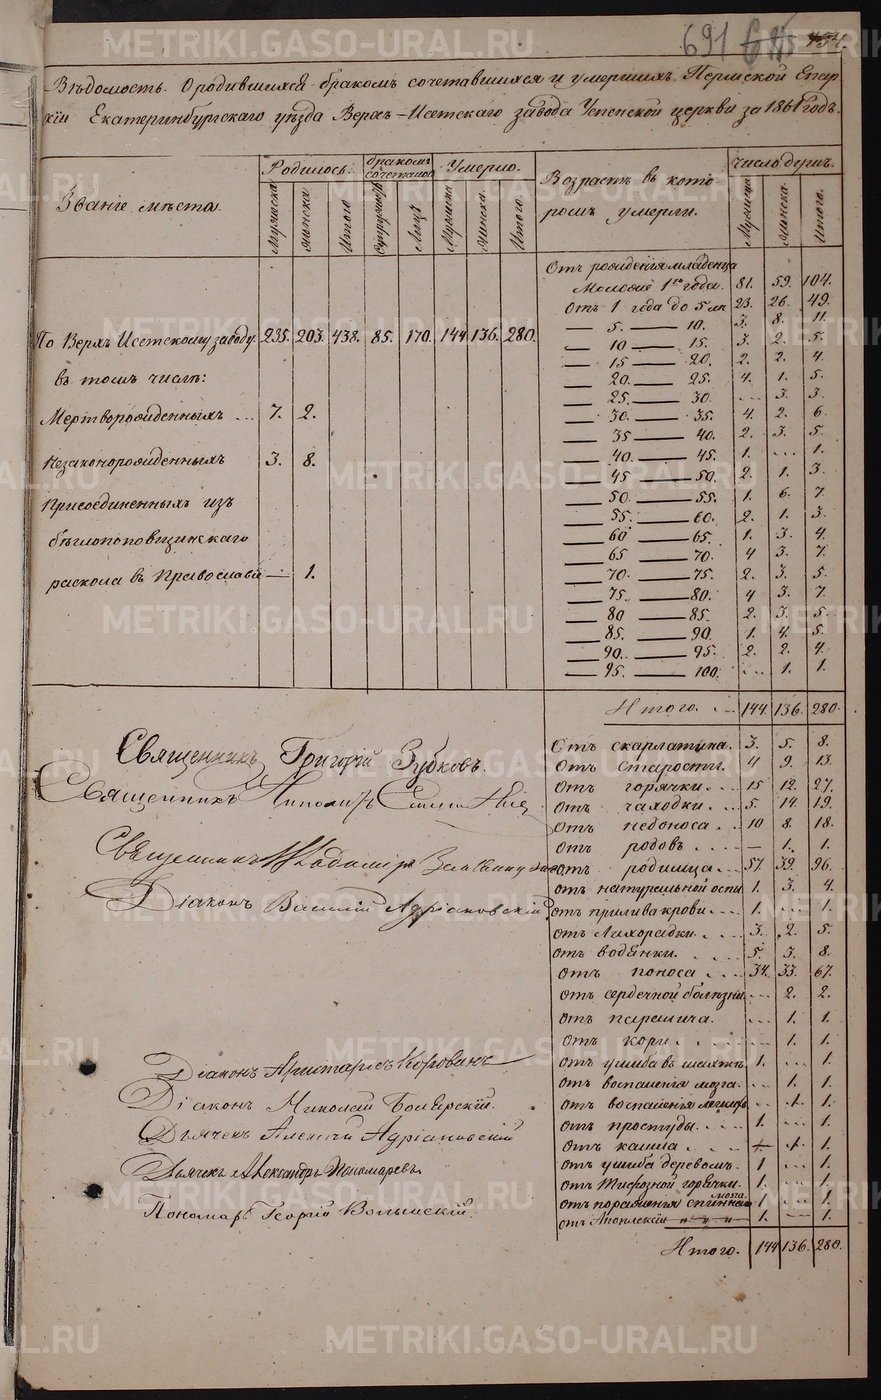 691
Вѣдомость. О родившихся бракомъ сочетавшихся и умершихъ Пермской Епар
хіи Екатеринбургскаго уѣзда Верхъ-Исетскаго завода Успенской церкви за 1861 годъ.
Званіе мѣста.
Родилось. бракомъ сочетавш. Умерло.
Возрастъ въ кото-
ромъ умерли.
Число душъ.
Мужеска женска Итого Супружествъ Лицъ Мужеска женска. Итого.
Мужеска женска. Итого.
Отъ рожденія младенца
моложе 1го года. 81. 59. 104.
Отъ 1 года до 5 лѣ 23. 26. 49.
— 5. — 10. 3. 8. 11.
— 10 — 15. 3. 2. 5.
— 15 — 20. 2. 2. 4.
— 20. — 25. 4. 1. 5.
— 25 — 30. ... 3. 3.
— 30. — 35. 4. 2. 6
— 35 — 40. 2. 3. 5.
— 40. — 45. 1. ... 1.
— 45 — 50. 2. 1. 3.
— 50. — 55. 1. 6. 7.
— 55. — 60. 2. 1. 3.
— 60 — 65. 1. 3. 4.
— 65 — 70. 4 3. 7.
— 70. — 75. 2. 3. 5.
— 75. — 80. 4 3. 7.
— 80 — 85. 2. 3. 5.
— 85. — 90. 1. 4. 5.
— 90. — 95. 2. 2. 4.
— 95. — 100. ... 1. 1.
Итого. ... 144. 136. 280.
По Верхъ Исетскому заводу. 235. 203. 438. 85. 170. 144. 136. 280.
въ томъ числѣ:
Мертворожденныхъ ... 7. 2.
Незаконорожденныхъ 3. 8.
Присоединенныхъ изъ
бѣглопоповщинскаго
раскола въ Православіе — 1.
Отъ скарлатина. 3. 5. 8.
Отъ старости. 4 9. 13.
Отъ горячки. ... 15 12. 27.
Отъ чаходки. .. 5. 14. 19.
Отъ недоноса .. 10 8. 18.
Отъ родовъ .. — 1. 1.
Отъ родимца ... 57. 39. 96.
Отъ натуральной оспы 1. 3. 4.
Отъ прилива крови .. 1. ... 1.
Отъ Лихорадки. ... 3. 2. 5.
Отъ водянки. ... 5. 3. 8.
Отъ поноса ... 34. 33. 67.
Отъ сердечной болѣзни ... 2. 2.
Отъ паралича. ... 1. 1.
Отъ кори ... 1. 1.
Отъ ушиба въ шахтѣ. 1. ... 1.
Отъ воспаленія мозга. ... 1. 1.
Отъ воспаленія легкихъ ... 1. 1.
Отъ простуды. ... 1. ... 1.
Отъ кашля ... 1. 1.
Отъ ушиба деревомъ. 1 ... 1.
Отъ Тифозной горячки. 1. ... 1.
Отъ пораженія спиннаго мозга 1 ... 1.
Отъ Апоплексіи 1. — 1.
Итого. 144 136. 280.
Священникъ Григорій Зубковъ.
Священникъ Ипполитъ
Священникъ Владиміръ
Діаконъ Василій Адріановскій
Діаконъ Аристархъ Коровинъ
Діаконъ Николай
Дьячекъ Алексѣй Адріановскій
Дьячекъ Александръ Пономаревъ
Пономарь Георгій Волынскій.
METRIKI.GASO-URAL.RU